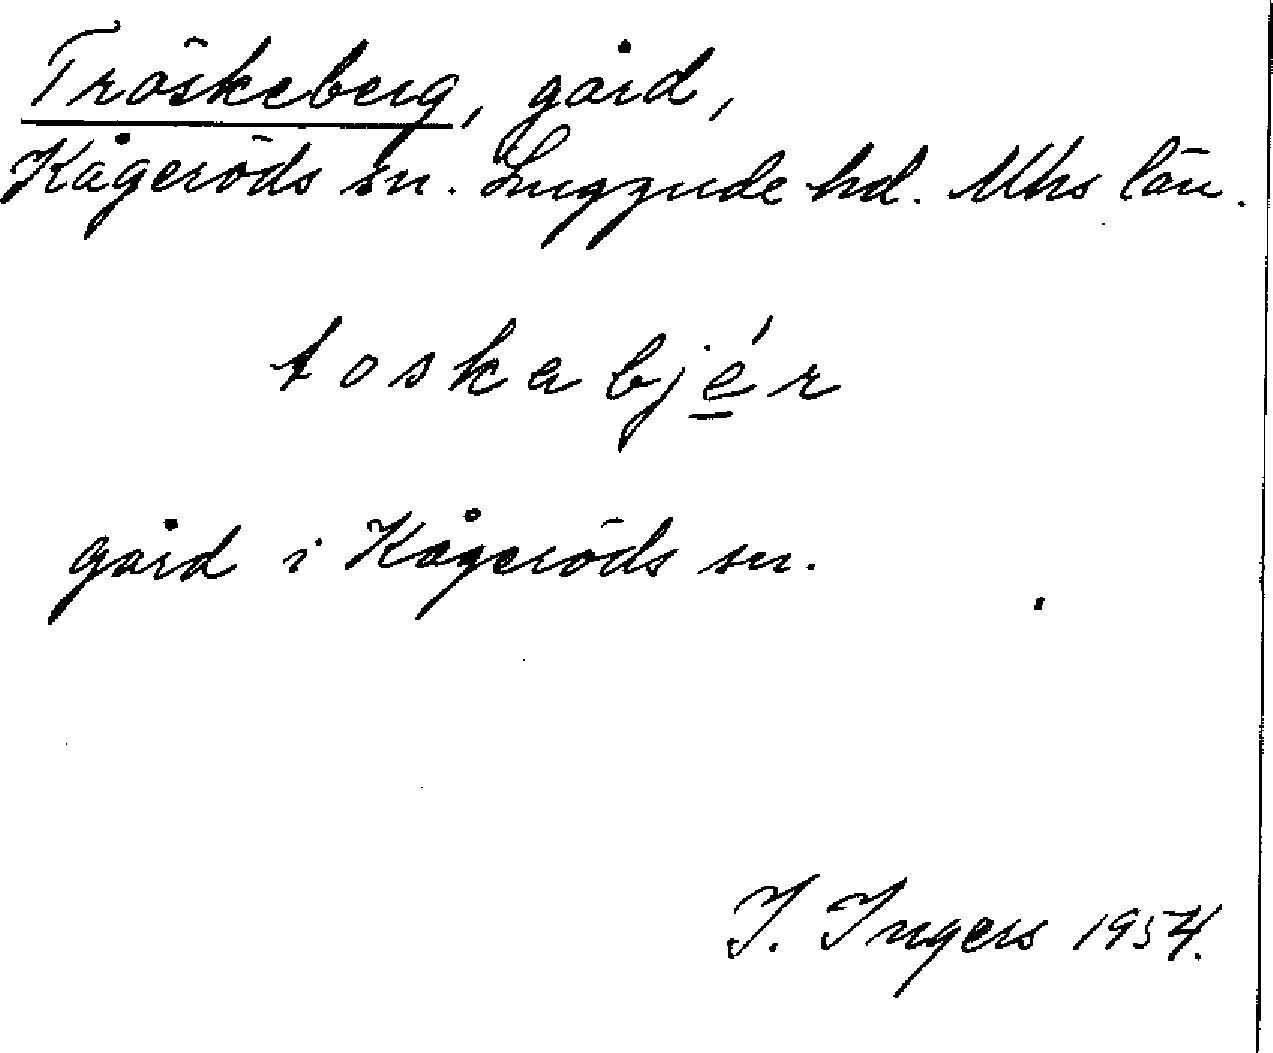 Tröskeberg, gård,
Kågeröds sn. Luggude hd. Mhs län.
toskabjér
gård i Kågeröds sn.
I. Ingers 1954.